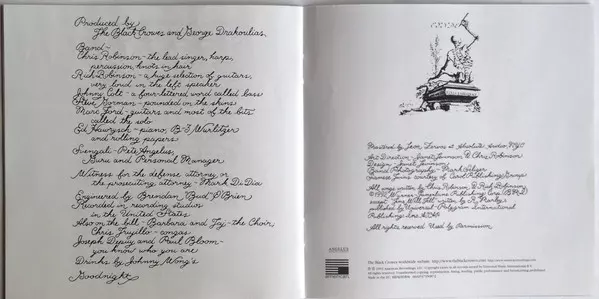 Produced by
The Black Crowes and George Drakoulias.
Band-
Chris Robinson-the lead singer, harp,
percussion, knots in hair
Rich Robinson - a huge selection of guitars,
very loud in the left speaker
Johnny Colt - a four-lettered word called bass
Steve Gorman - pounded on the skins
Marc Ford - guitars and most of the bits
called the solo
Ed Hawrysch - piano, B-3 Wurlitzer
and rolling papers
Svengali - Pete Angelus,
Guru and Personal Manager
Witness for the defense attorney or
the prosecuting attorney - Mark DiDia
Engineered by Brendan "Bud" O'Brien
Recorded in recording studios
in the United States
Also on the bill - Barbara and Joy - the Choir,
Chris Trujillo - congas
Joseph Deputy and Paul Bloom-
you know who you are
Drinks by Johnny Wong's
Goodnight
Mastered by Leon Zervos at Absolute Audio, NYC
Art Direction - Janet Levinson & Chris Robinson
Design - Janet Levinson
Band Photography - Mark Seliger
courtesy of
All songs written by Chris Robinson & Rich Robinson
except Time Will Tell written by R. Marley
published by Universal - Polygram International
Publishing Inc.
All rights reserved. Used by Permission.
AMERICAN
The Black Crowes worldwide website: